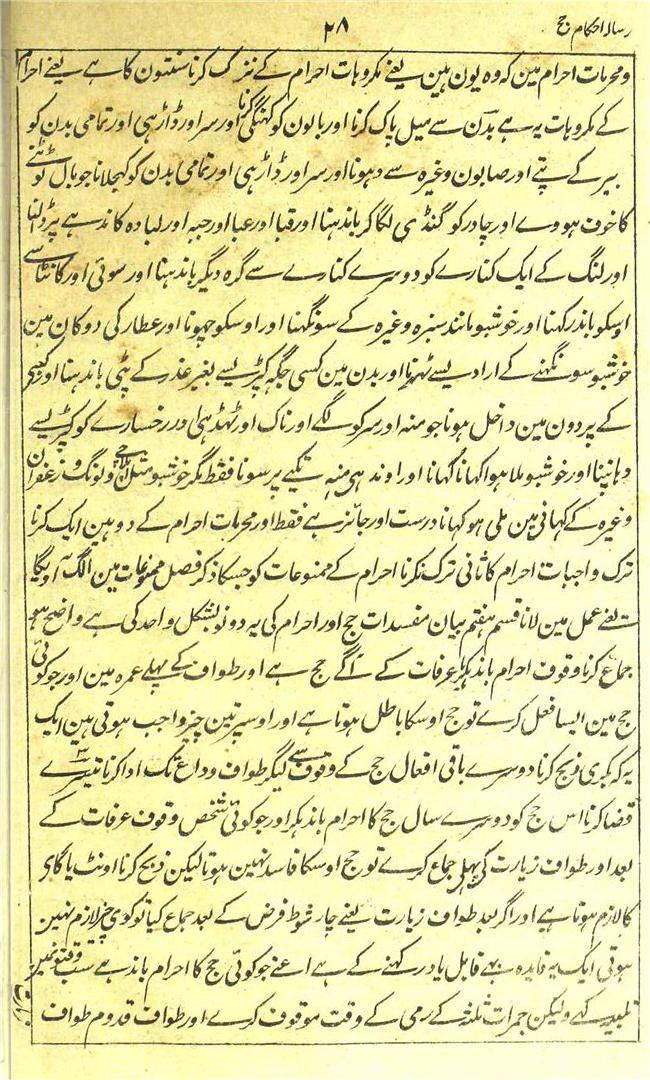 رسالہ احکام حج
۲۸
ومحرمات احرام مین کہ وہ یون ہین یعنے مکروہات احرام کے ترک کرنا سنتون کا ہے یعنے احرام
کے مکروہات یہ ہے بدن سے میل پاک کرنا اور بالون کو کنگھی کرنا اور سر اور ڈاڑہی اور تمامی بدن کو
بیر کے پتے اور صابون وغیرہ سے دہونا اور سر اور ڈاڑہی اور تمامی بدن کو کہجلانا جو بال ٹوٹنے
کا خوف ہووے اور چادر کو گنڈی لگا کر باندہنا اور قبا اور عبا اور جبہ اور لبادہ کاندہے پر ڈالنا
اور لنگ کے ایک کنارے کو دوسرے کنارے سے گرہ دیگر باندہنا اور سوئی اور کانٹا سے
اوسکو باندہ رکہنا اور خوشبو مانند سبزہ وغیرہ کے سونگہنا اور اوسکو چہونا اور عطار کی دوکان مین
خوشبو سونگہنے کے ارادیسے ٹہرنا اور بدن مین کسی جگہہ کپڑیسے بغیر عذر کے پٹی باندہنا اور کعبہ
کے پردون مین داخل ہونا جو منہ اور سر کو لگے اور ناک اور ٹہڈہی اور رخسارے کو کپڑیسے
دہانپنا اور خوشبو ملا ہوا کہانا کہانا اور اوندہی منہ تکیے پر سونا فقط مگر خوشبو مثل الاچی ولونگ و زعفران
وغیرہ کے کہانی مین ملی ہو کہانا درست اور جائز ہے فقط اور محرمات احرام کے دو ہین ایک کرنا
ترک واجبات احرام کا ثانی ترک نکرنا احرام کے ممنوعات کو جسکا ذکر فصل ممنوعات مین الگ آویگا
یعنے عمل مین لانا قسم ہفتم بیان مفسدات حج اور احرام کی یہ دونو بشکل واحد کی ہے واضح ہو
جماع کرنا وقوف احرام باندہکر عرفات کے آگے حج ہے اور طواف کے پہلے عمرہ مین اور جو کوئی
حج مین ایسا فعل کرے تو حج اوسکا باطل ہوتا ہے اور اوسپر تین چیز واجب ہوتی ہین ایک
یہ کہ بکری ذبح کرنا دوسرے باقی افعال حج کے وقوف سے لیگر طواف وداع تک ادا کرنا تیسرے
قضا کرنا اس حج کو دوسرے سال حج کا احرام باندہکر اور جو کوئی شخص وقوف عرفات کے
بعد اور طواف زیارت کی پہلی جماع کرے تو حج اوسکا فاسد نہین ہوتا لیکن ذبح کرنا اونٹ یا گای
کا لازم ہوتا ہے اور اگر بعد طواف زیارت یعنے چار شوط فرض کے بعد جماع کیا تو کوی چیز لازم نہین
ہوتی ایک یہ فایدہ بہے قابل یاد رکہنے کے ہے اعنے جو کوئی حج کا احرام باندہے سب وقتونمین
تلبیہ کہے ولیکن جمرات ثلثہ کے رمی کے وقت موقوف کرے اور طواف قدوم طواف